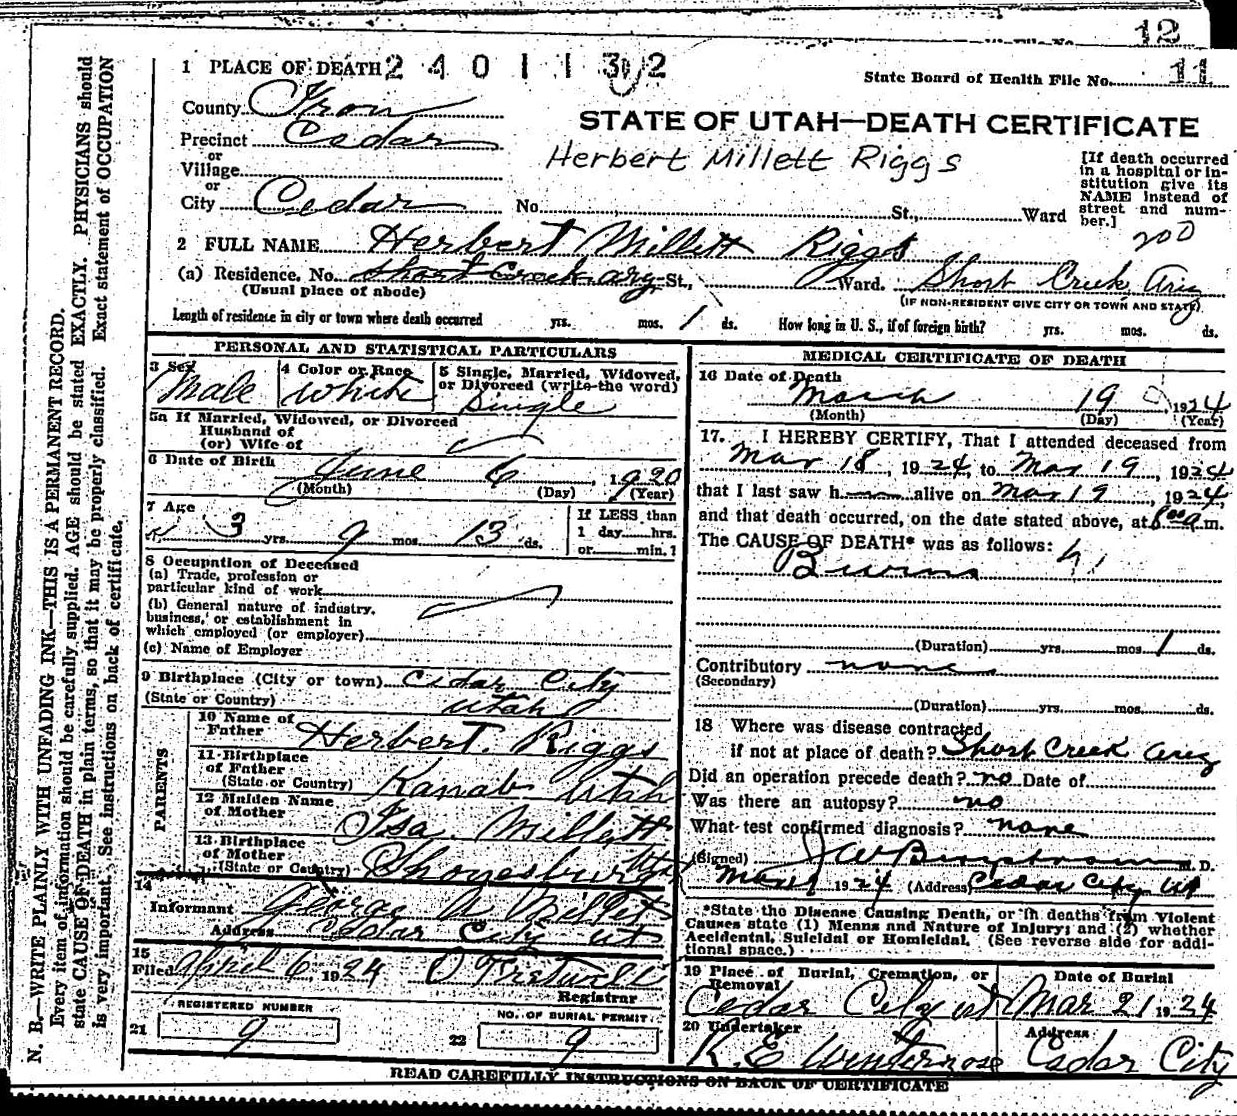 12
1 PLACE OF DEATH 2 4 0 1 1 3 2
State Board of Health File No. 11
County Iron
STATE OF UTAH—DEATH CERTIFICATE
Precinct Cedar
Herbert Millett Riggs
or
Village
or
City Cedar No. St., Ward
[If death occurred
in a hospital or in-
stitution give its
NAME instead of
street and num-
ber.]
200
2 FULL NAME Herbert Millett Riggs
(a) Residence. No. Short Creek Ariz St., Ward. Short Creek Ariz
(Usual place of abode)
(IF NON-RESIDENT GIVE CITY OR TOWN AND STATE)
Length of residence in city or town where death occurred yrs. mos. 1 ds. How long in U. S., if of foreign birth? yrs. mos. ds.
PERSONAL AND STATISTICAL PARTICULARS
3 Sex
Male
4 Color or Race
White
5 Single, Married, Widowed,
or Divorced (write the word)
Single
5a If Married, Widowed, or Divorced
Husband of
(or) Wife of
6 Date of Birth
June 6, 1920
(Month) (Day) (Year)
7 Age
3 yrs. 9 mos. 13 ds.
If LESS than
1 day hrs.
or min.?
8 Occupation of Deceased
(a) Trade, profession or
particular kind of work
(b) General nature of industry,
business, or establishment in
which employed (or employer)
(c) Name of Employer
9 Birthplace (City or town) Cedar City
(State or Country) Utah
PARENTS
10 Name of
Father Herbert Riggs
11 Birthplace
of Father
(State or Country) Kanab Utah
12 Maiden Name
of Mother Isa Millett
13 Birthplace
of Mother
(State or Country) Shonesburg Utah
14
Informant George A Millet
Address Cedar City Ut
15
Filed April 6 1924
Registrar
REGISTERED NUMBER
21 9
NO. OF BURIAL PERMIT
22 9
MEDICAL CERTIFICATE OF DEATH
16 Date of Death
March 19, 1924
(Month) (Day) (Year)
17. I HEREBY CERTIFY, That I attended deceased from
Mar 18, 1924, to Mar 19, 1924
that I last saw h alive on Mar 19, 1924,
and that death occurred, on the date stated above, at 8 00 a.m.
The CAUSE OF DEATH* was as follows:
Burns
(Duration) yrs. mos. 1 ds.
Contributory none
(Secondary)
(Duration) yrs. mos. ds.
18 Where was disease contracted
if not at place of death? Short Creek Ariz
Did an operation precede death? no Date of
Was there an autopsy? no
What test confirmed diagnosis? none
(Signed) J W Bergstrom M. D.
Mar 19 1924 (Address) Cedar City Ut
*State the Disease Causing Death, or in deaths from Violent
Causes state (1) Means and Nature of Injury; and (2) whether
Accidental, Suicidal or Homicidal. (See reverse side for addi-
tional space.)
19 Place of Burial, Cremation, or
Removal
Cedar City Ut
Date of Burial
Mar 21 1924
20 Undertaker
R. E. Winterrose
Address
Cedar City
READ CAREFULLY INSTRUCTIONS ON BACK OF CERTIFICATE
N. B.—WRITE PLAINLY WITH UNFADING INK—THIS IS A PERMANENT RECORD.
Every item of information should be carefully supplied. AGE should be stated EXACTLY. PHYSICIANS should
state CAUSE OF DEATH in plain terms, so that it may be properly classified. Exact statement of OCCUPATION
is very important. See instructions on back of certificate.